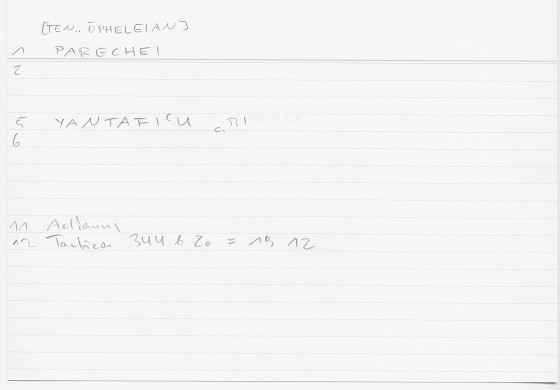 [TEN.. ŌPHELEIAN]
1 PARECHEI
2
5 YANTAFICU c.
6
11 Aelianus
12 Tactica 344 b 20 = 19 12